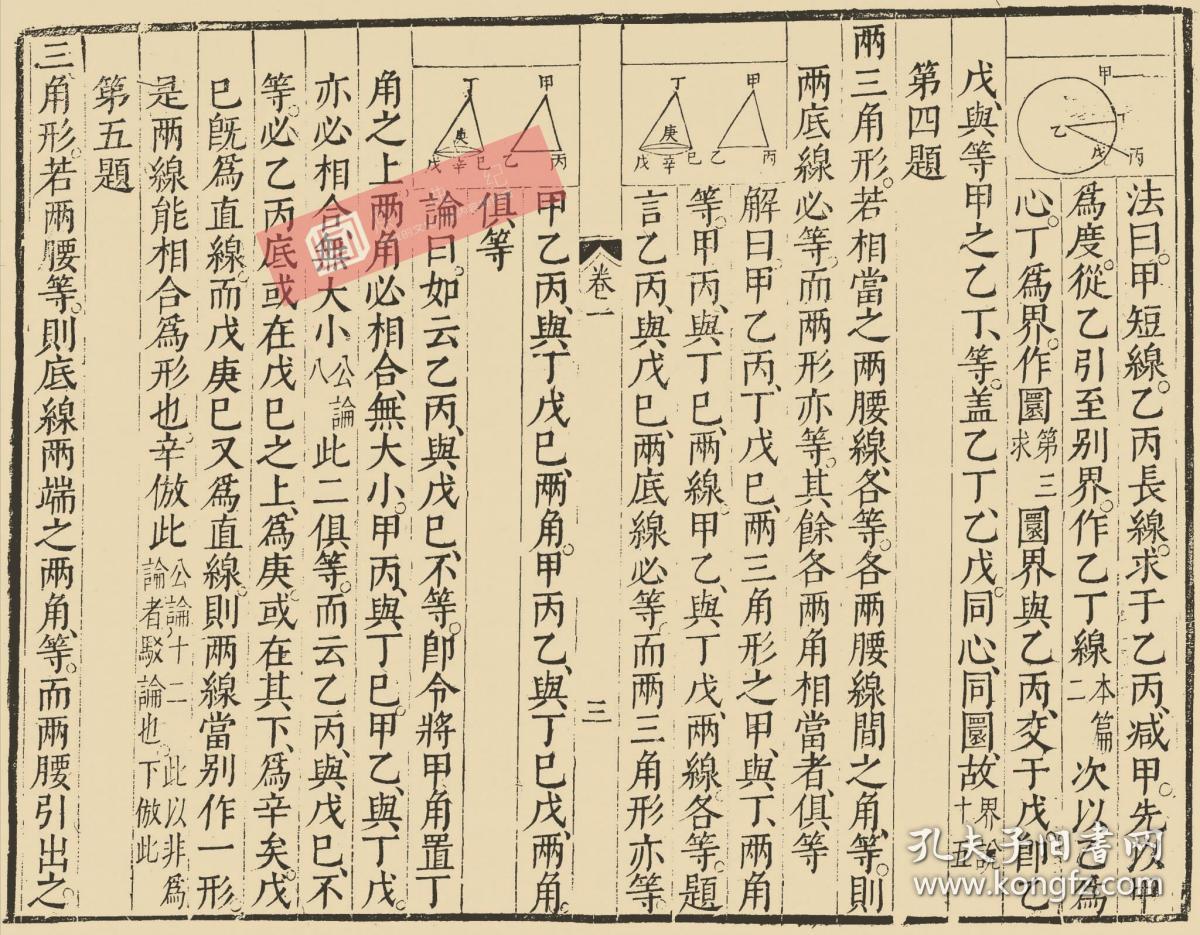 甲
乙
丁
戊
丙
法曰。甲短線。乙丙長線。求于乙丙、減甲。先以甲
爲度。從乙引至別界。作乙丁線本篇二次以乙爲
心。丁爲界。作圜第三求圜界與乙丙、交于戊。卽乙
戊、與等甲之乙丁、等。盖乙丁、乙戊。同心、同圜、故界說十五
第四題
兩三角形。若相當之兩腰線、各等。各兩腰線間之角、等。則
兩底線必等。而兩形亦等。其餘各兩角相當者、俱等
丁
甲
庚
戊
辛
巳
乙
丙
解曰。甲乙丙、丁戊巳、兩三角形之甲、與丁、兩角
等。甲丙、與丁巳、兩線。甲乙、與丁戊、兩線各等。題
言乙丙、與戊巳、兩底線必等。而兩三角形亦等。
卷一
三
甲乙丙、與丁戊巳、兩角。甲丙乙、與丁巳戊、兩角。
俱等
丁
甲
庚
戊
辛
巳
乙
丙
論曰。如云乙丙、與戊巳、不等。卽令將甲角置丁
角之上。兩角必相合、無大小。甲丙、與丁巳。甲乙、與丁戊。
亦必相合、無大小公論八此二俱等。而云乙丙、與戊巳、不
等。必乙丙底或在戊巳之上、爲庚。或在其下、爲辛矣。戊
巳旣爲直線。而戊庚巳又爲直線。則兩線當別作一形。
是兩線能相合爲形也。辛倣此公論十二此以非爲論者駁論也、下倣此
第五題
三角形。若兩腰等。則底線兩端之兩角、等。而兩腰引出之。
孔夫子旧書网
www.kongfz.com